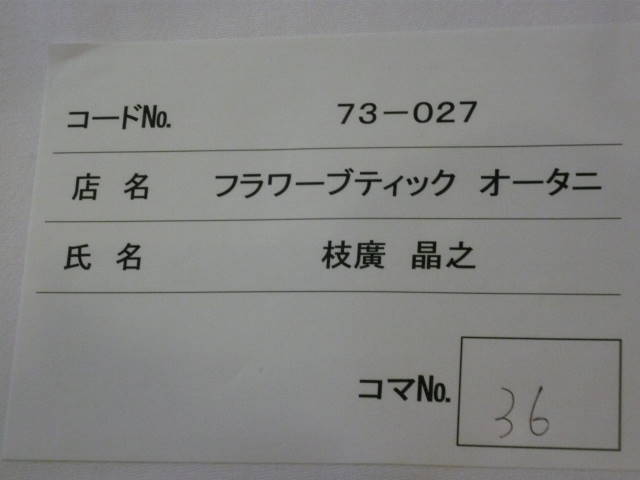 コードNo. 73－027
店 名 フラワーブティック オータニ
氏 名 枝廣 晶之
コマNo. 36